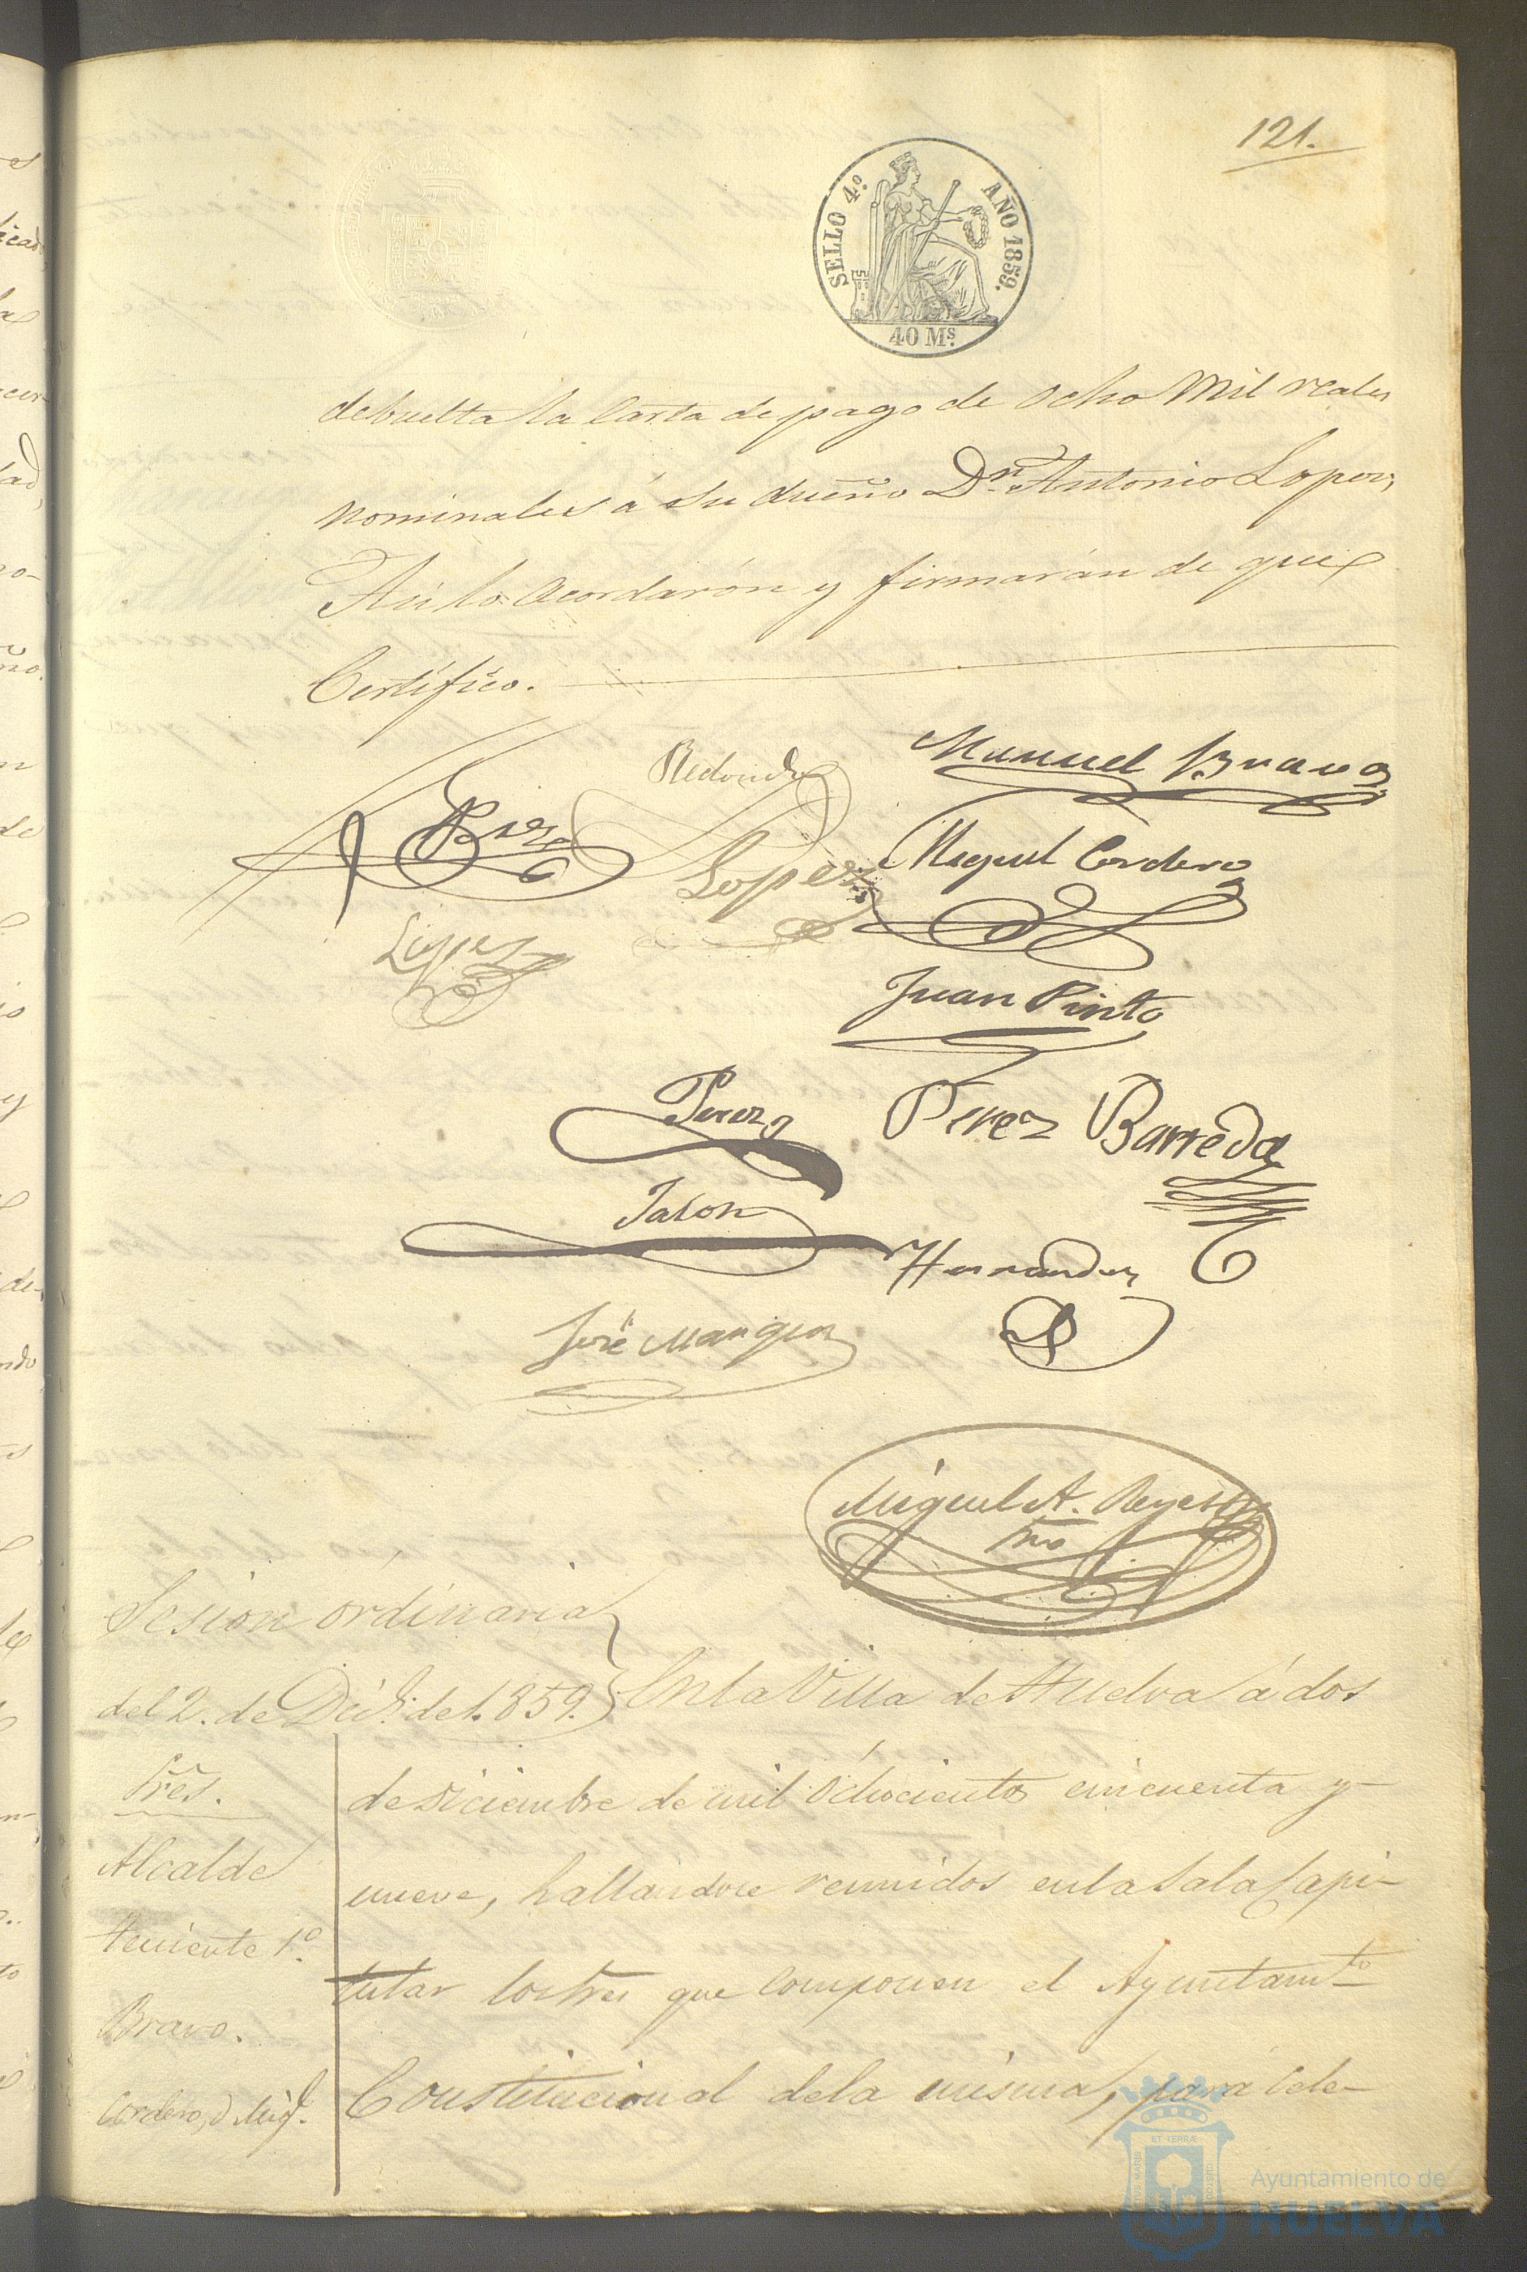 121.
SELLO 4.º AÑO 1859.
40 Ms.
debuelta la Carta de pago de ocho Mil reales
nominales á su dueño Dn. Antonio Lopez,
Asi lo acordarón y firmarán de que
Certifico.
Redondo
Manuel Bravo
Lopez
Miguel Cordero
Lopez
Juan Pinto
Perez
Perez Barreda
Jalon
Hernandez
José Marquez
Miguel A. Reyes
Srio
Sesion ordinaria
del 2. de Dice. de 1.859. En la Villa de Huelva á dos
Sres.
de Diciembre de mil ochocientos cincuenta y
Alcalde
nueve, hallandose reunidos en la Sala Capi-
Teniente 1º.
tular los Sres que componen el Ayuntamto
Bravo.
Constitucional de la misma, para cele-
Cordero, D. Migl.
Ayuntamiento de
HUELVA